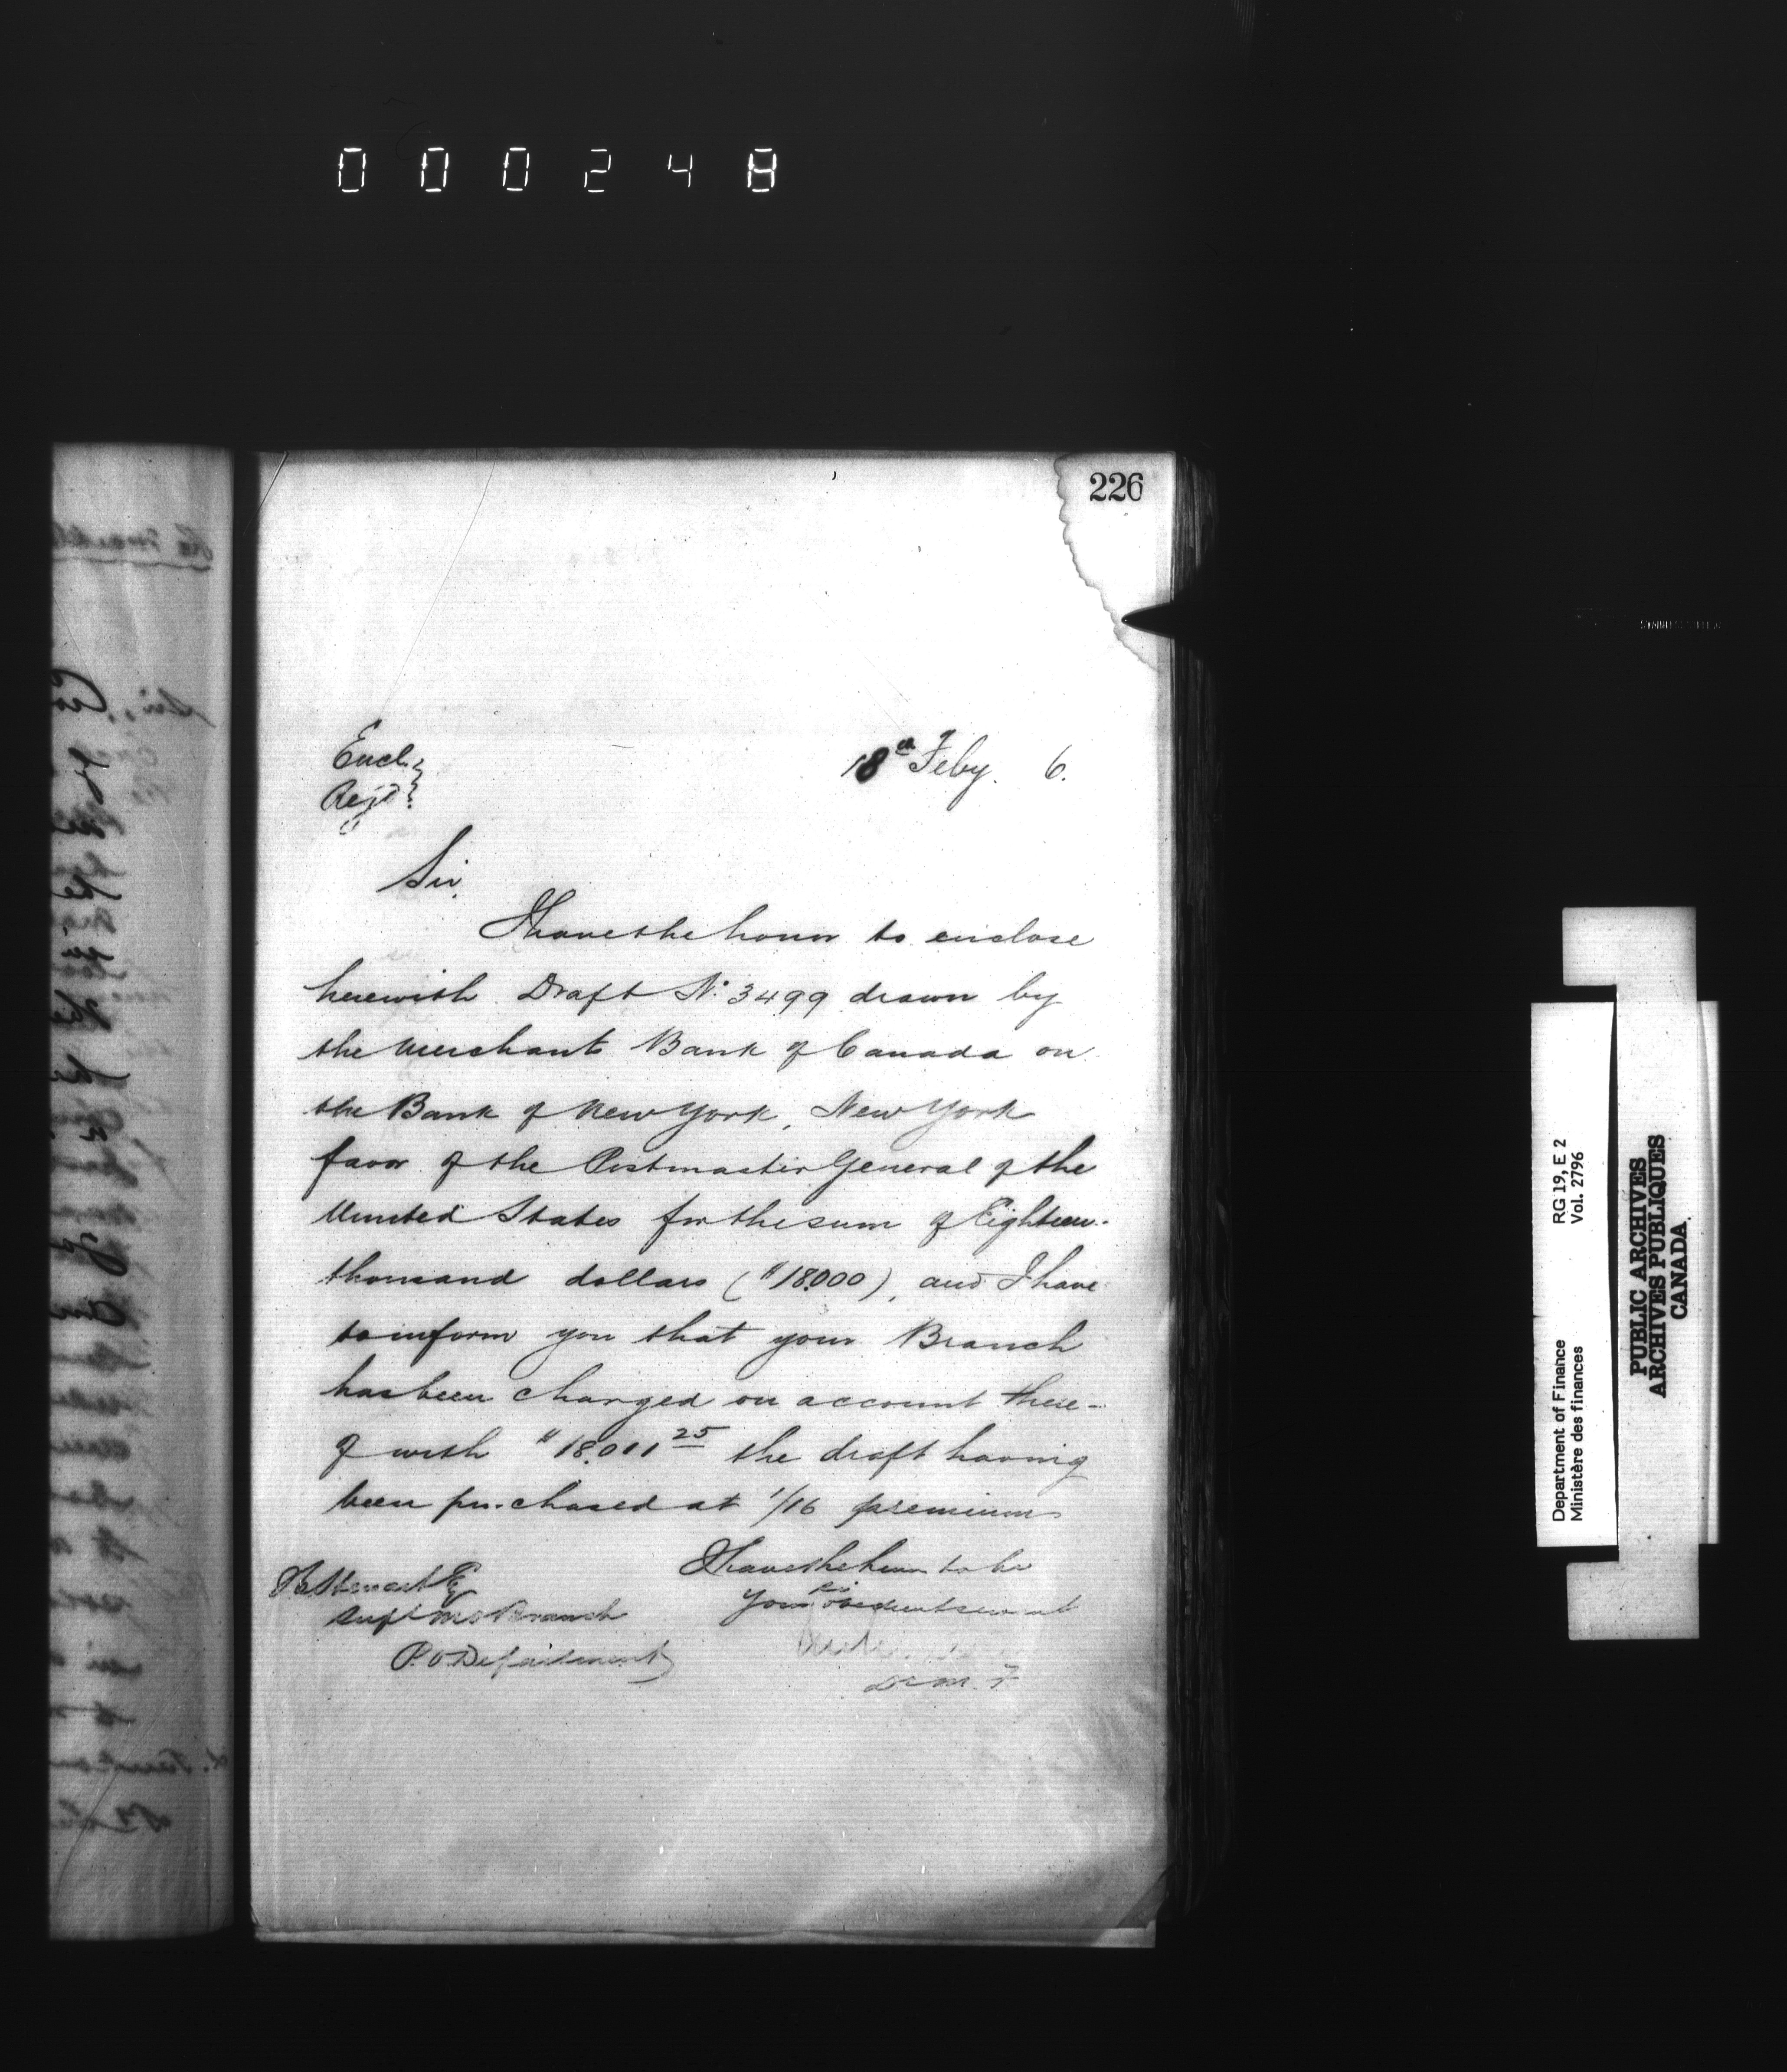 000248
226
Encl.
Regd
18th Feby. 6.
Sir,
I have the honor to enclose
herewith Draft No. 3499 drawn by
the Merchants Bank of Canada on
the Bank of New York, New York
favor of the Postmaster General of the
United States for the sum of Eighteen
thousand dollars ($18,000), and I have
to inform you that your Branch
has been charged on account there-
of with $18,011 25 the draft having
been purchased at 1/16 premium
I have the honor to be
Sir
Your obedient servant
D.M.F
Stewart Esq
Supt M O Branch
P.O. Department
Department of Finance RG 19, E 2
Ministère des finances Vol. 2796
PUBLIC ARCHIVES
ARCHIVES PUBLIQUES
CANADA